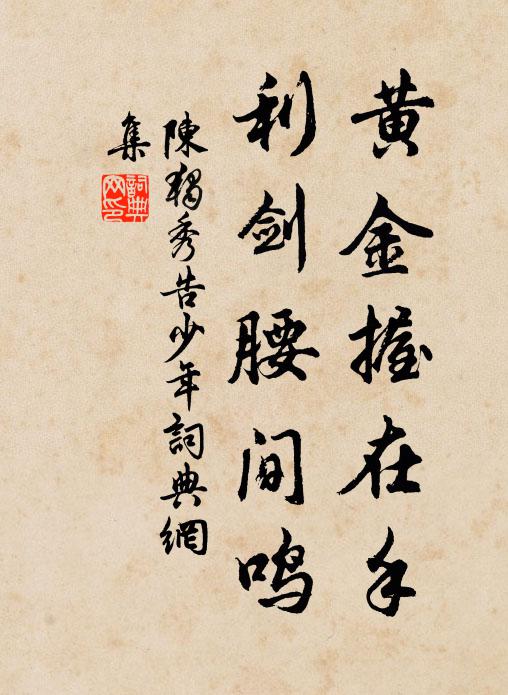 黄金握在手
利剑腰间鸣
陳獨秀告少年詞典網
集
詞典
网印